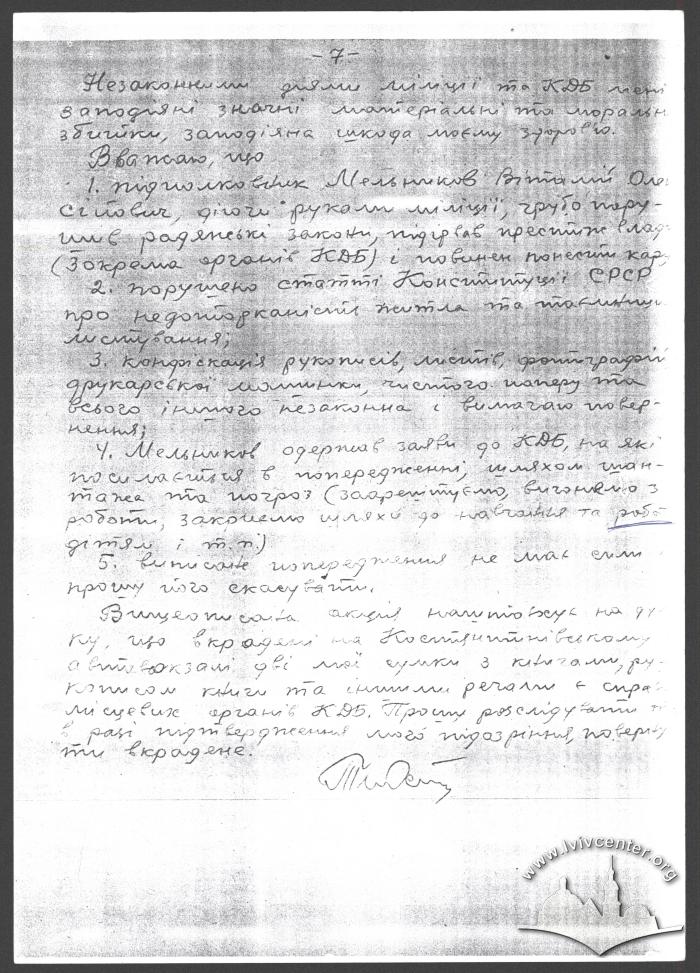 - 7 -
Незаконними діями міліції та КДБ мені
заподіяні значні матеріальні та моральн
збитки, заподіяна шкода моєму здоров'ю.
Вважаю, що
1. підполковник Мельников Віталій Оле
сійович, діючи руками міліції, грубо пору-
шив радянські закони, підірвав престиж влад
(зокрема органів КДБ) і повинен понести кар
2. порушено статті Конституції СРСР
про недоторканість житла та таємниці
листування;
3. конфіскація рукописів, листів, фотографій
друкарської машинки, чистого паперу та
всього іншого незаконна і вимагаю повер-
нення;
4. Мельников одержав заяви до КДБ, на які
посилається в попередженні, шляхом шан-
тажа та погроз (заарештуємо, виженемо з
роботи, закриємо шляхи до навчання та робо
дітям і т.п.)
5. виписане попередження не має сили
прошу його скасувати.
Вищеописана акція наштовхує на ду-
ку, що вкрадені на Костянтинівському
автовокзалі дві мої сумки з книгами, ру-
кописом книги та іншими речами є справ
місцевих органів КДБ. Прошу розслідувати
в разі підтвердження мого підозріння, поверну
ти вкрадене.
www.lvivcenter.org